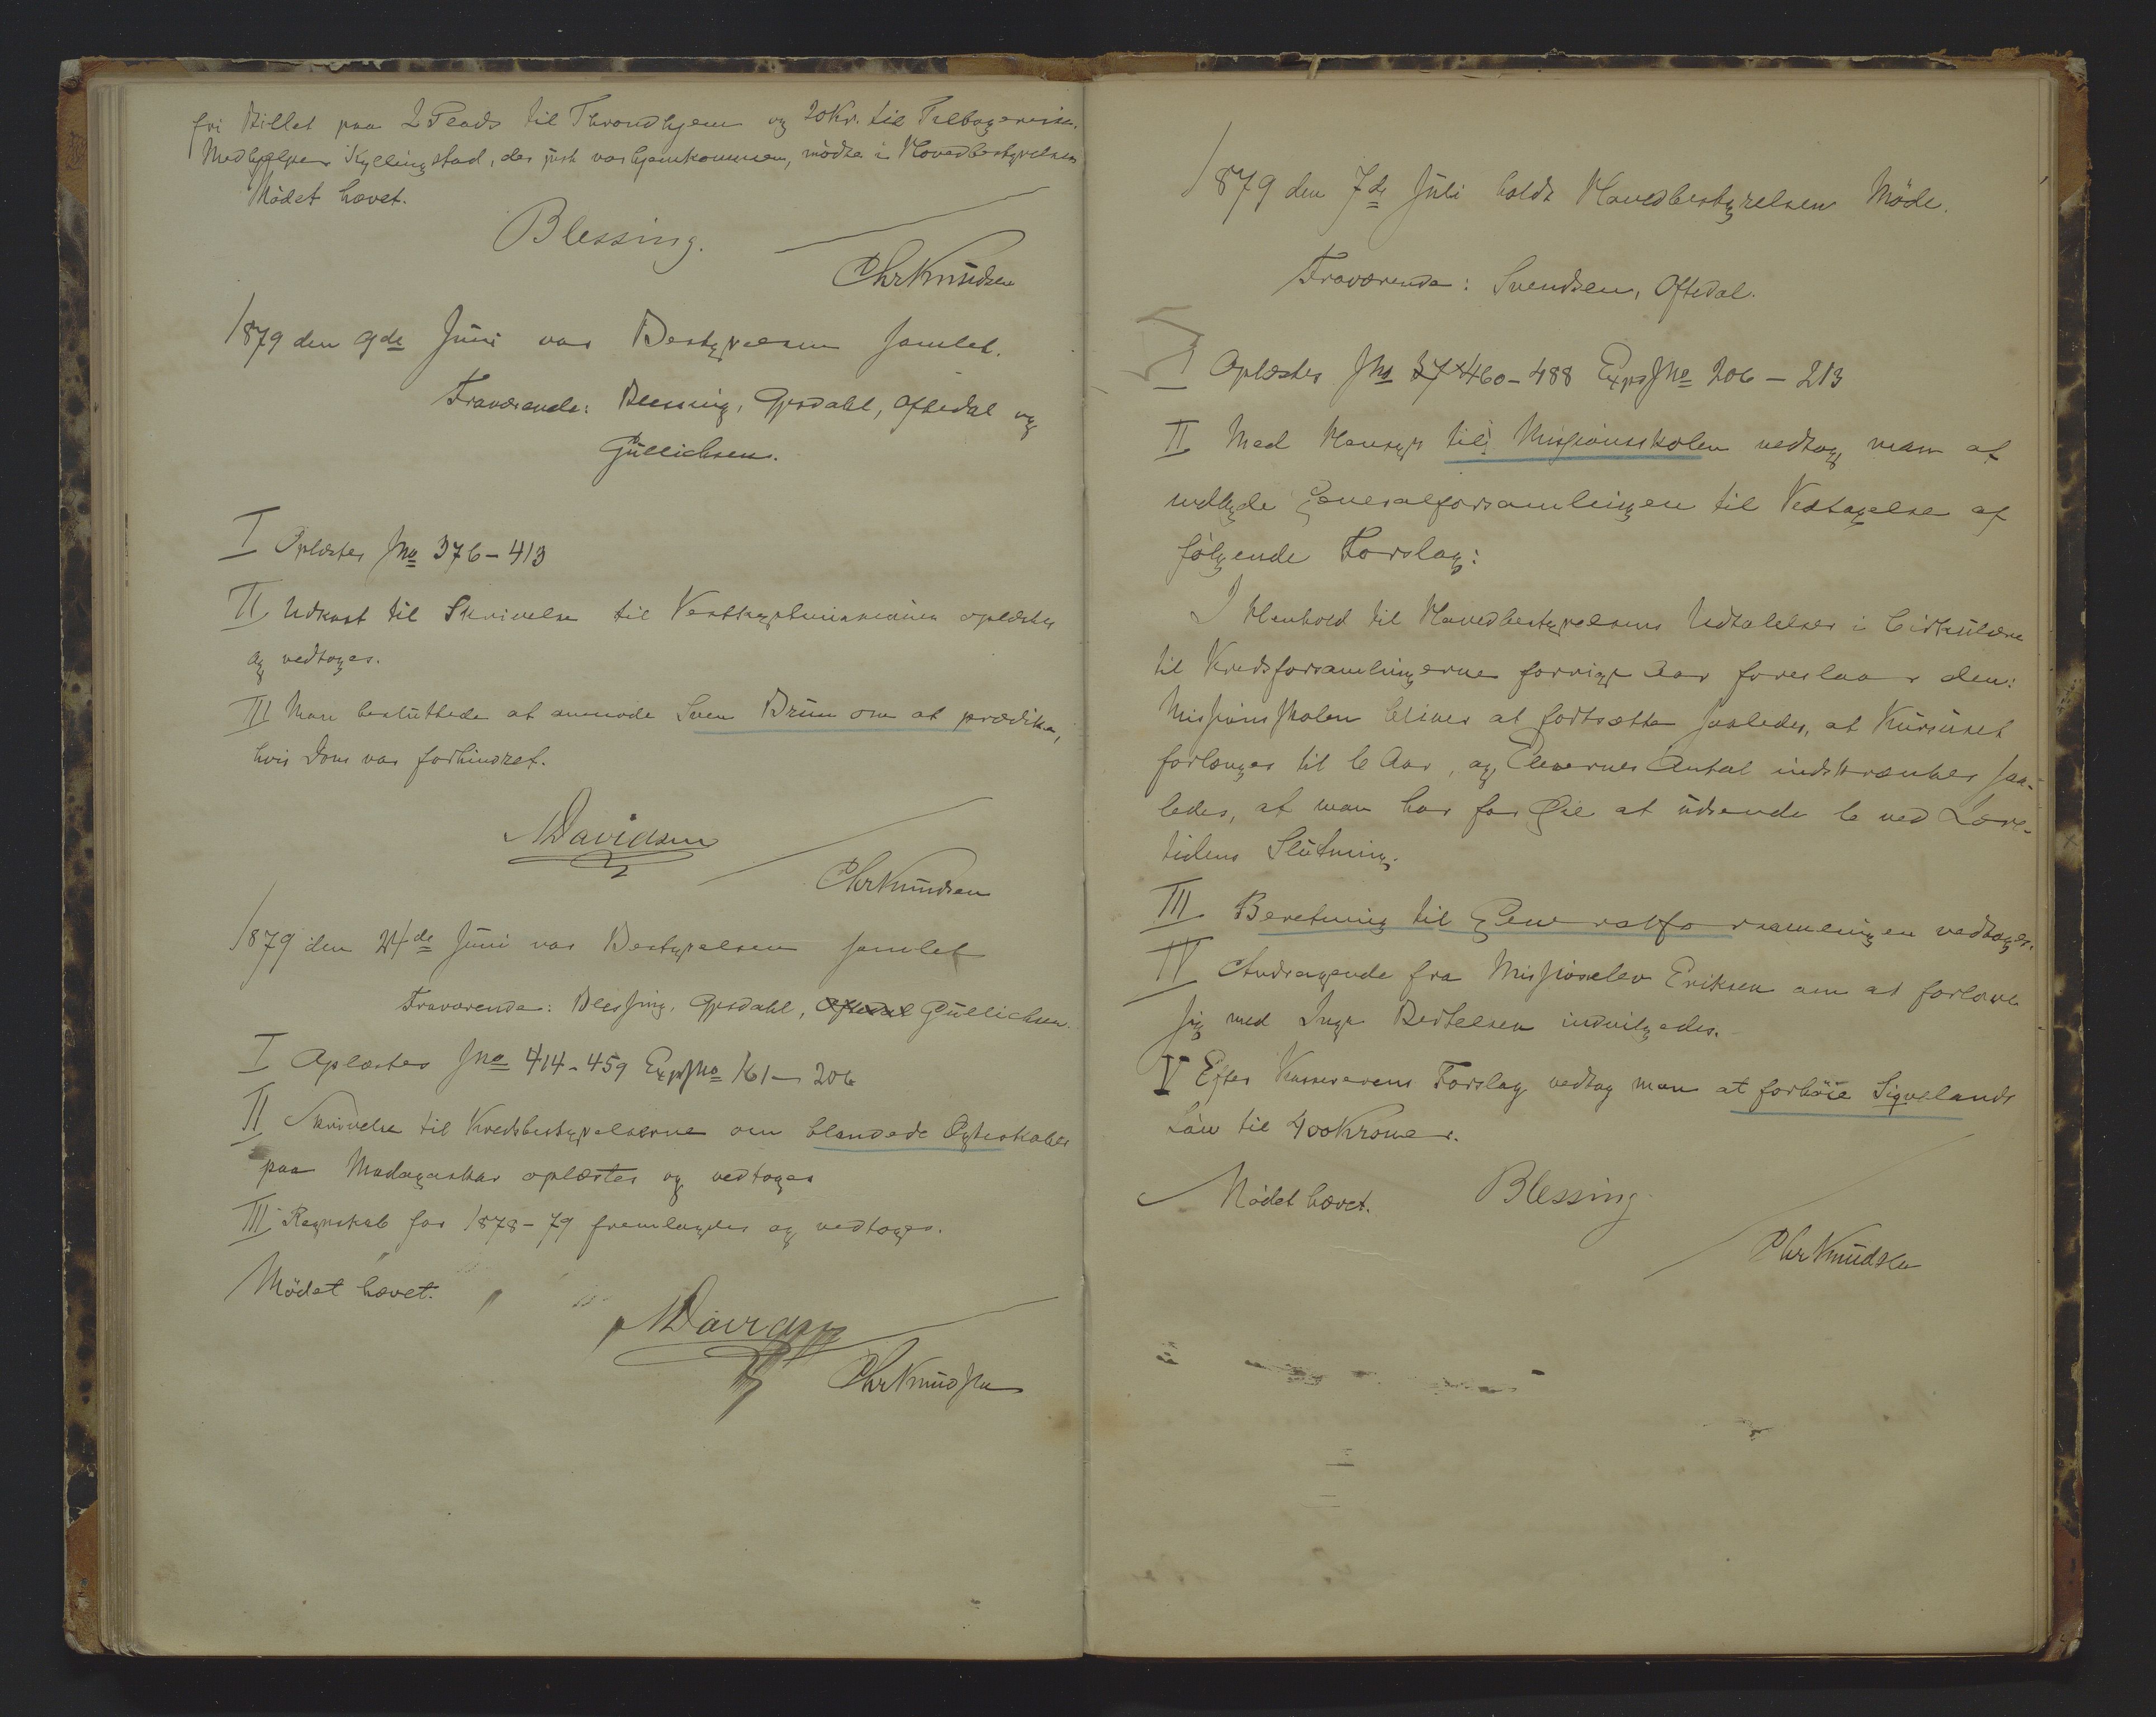 fri Billet paa 2 Plads til Throndhjem og 20 Kr. til Tilbagereise.
Medhjælper Kyllingstad, der just var hjemkommen, mødte i Hovedbestyrelsen
Mödet hævet.
Blessing.
Chr Knudsen
1879 den 9de Juni var Bestyrelsen samlet.
Fraværende: Blessing, Gjesdahl, Oftedal og
Gullichsen.
I Oplæstes Jno 376-413
II Udkast til Skrivelse til oplæstes
og vedtoges.
III Man besluttede at anmode Sven Brun om at prædike,
hvis Dons var forhindret.
MDavidsen
Chr Knudsen
1879 den 24de Juni var Bestyrelsen samlet
Fraværende: Blessing, Gjesdahl, Oftedal Gullichsen.
I Oplæstes Jno 414-459 ExpJno 161-206
II Skrivelse til Kredsbestyrelserne om blandede Ægteskaber
paa Madagaskar oplæstes og vedtoges
III Regnskab for 1878-79 fremlagdes og vedtoges.
Mödet hævet.
MDavidsen
Chr Knudsen
1879 den 7de Juli holdt Hovedbestyrelsen Möde.
Fraværende: Svendsen, Oftedal.
I Oplæstes Jno 460-488 ExpsJno 206-213
II Med Hensyn til Missionsskolen vedtog man at
indbyde Generalforsamlingen til Vedtagelse af
fölgende Forslag:
I Henhold til Hovedbestyrelsens Udtalelser i Cirkulære
til Kredsforsamlingerne forrige Aar foreslaar den:
Missionsskolen bliver at fortsætte saaledes, at Kursuset
forlænges til 6 Aar, og Elevernes Antal indskrænkes saa-
ledes, at man har for Øie at udsende 6 ved Lære-
tidens Slutning.
III Beretning til Generalforsamlingen vedtoges.
IV Andragende fra Missionselev Eriksen om at forlove
sig med Inga Bertelsen indvilgedes.
V Efter Kassererens Forslag vedtog man at forhöie Sigvelands
Lön til 400 Kroner.
Mödet hævet. Blessing
Chr Knudsen